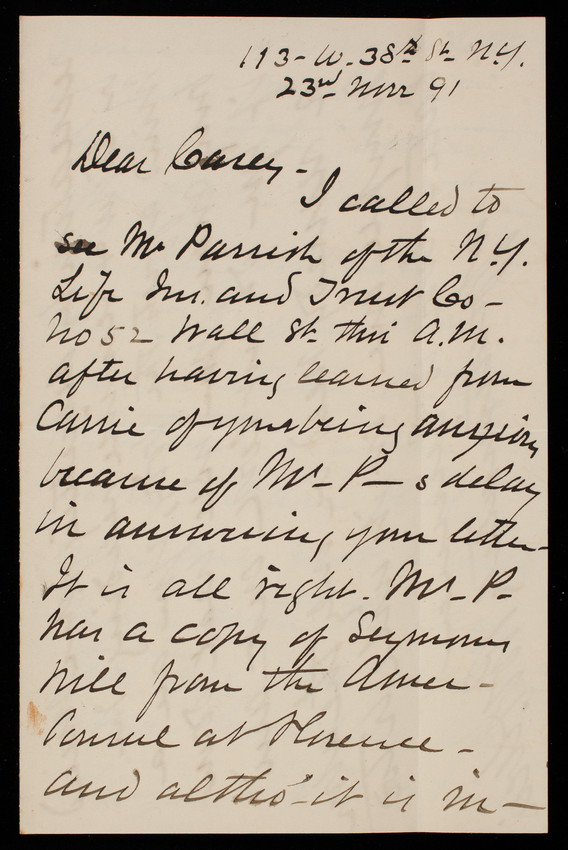 113 - W. 38th St. N.Y.
23rd Novr 91
Dear Casey -
I called to
see Mr Parrish of the N.Y.
Life Ins. and Trust Co -
No 52 Wall St. this A.M.
after having learned from
Carrie of your being anxious
because of Mr - P - s delay
in answering your letter -
It is all right. Mr - P -
has a copy of Seymours
Will from the Amer -
Consul at Florence -
and altho' - it is in -